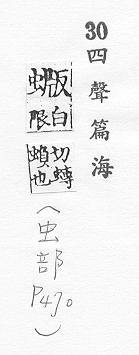 30 四聲篇海
蝂 白限切
蝜也
(虫部 P470)